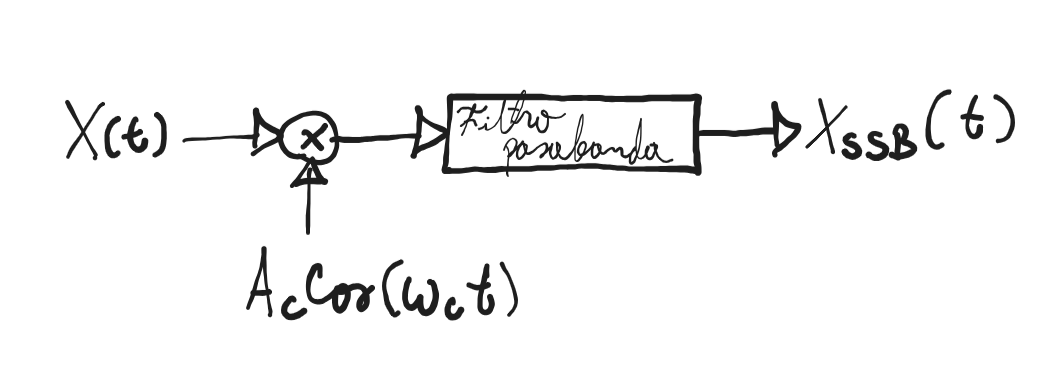 X(t)
x
Filtro
pasabanda
X_SSB(t)
A_c Cos(ω_c t)